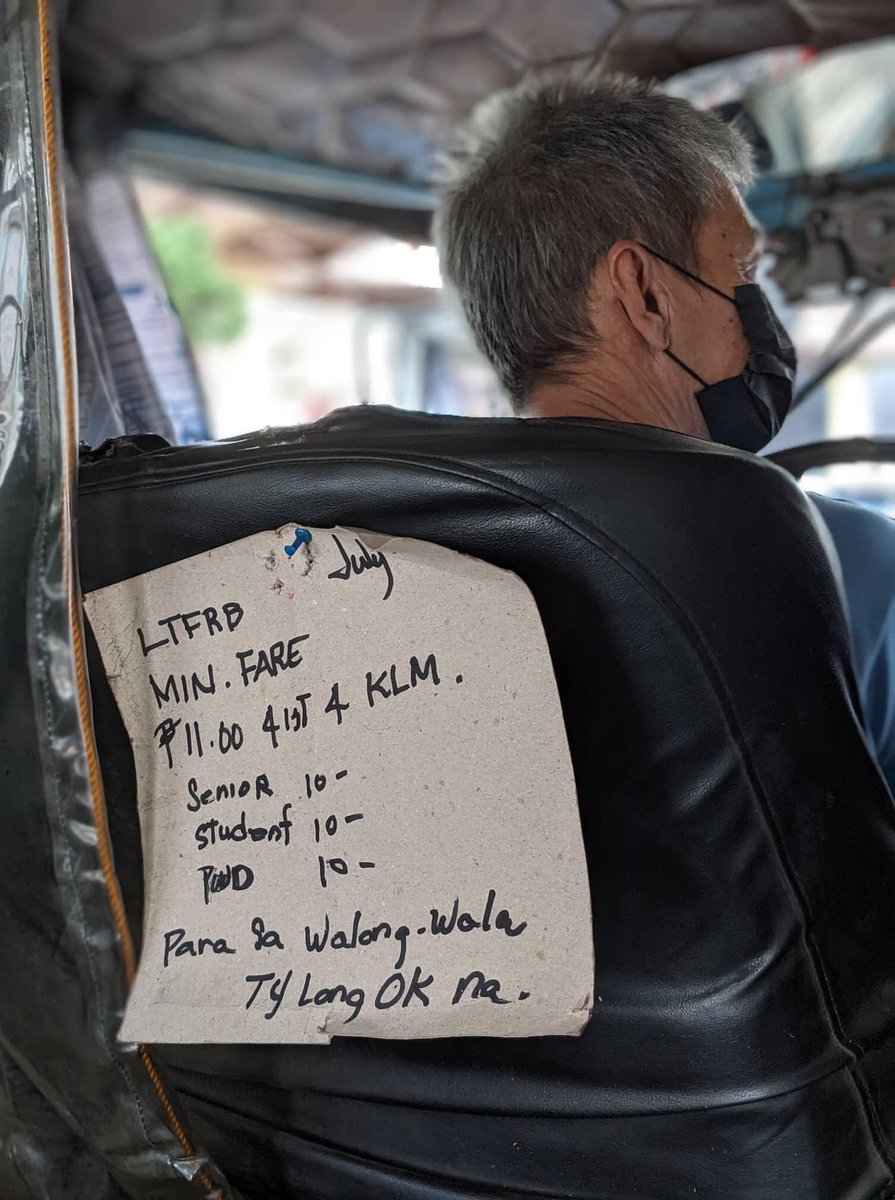 July
LTFRB
MIN. FARE
₱11.00 41ST 4 KLM.
Senior 10-
Student 10-
PWD 10-
Para Sa Walong-Wala
TY Long OK na.